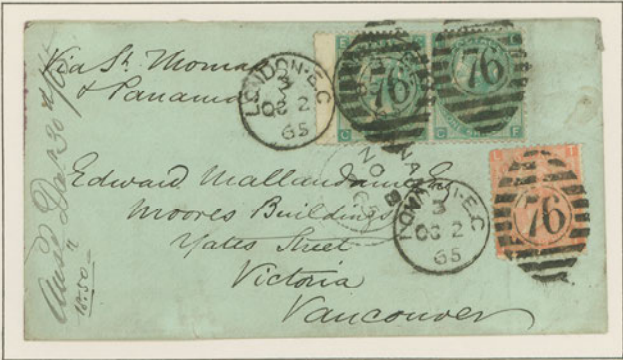 Via St. Thomas
& Panama
LONDON·E.C
3
OC 2
65
76
76
Edward Mallandaine Esq
Moores Buildings
Yates Street
Victoria
Vancouver
PANAMA
NO
LONDON·E.C
3
OC 2
65
76
Ansd
10.50